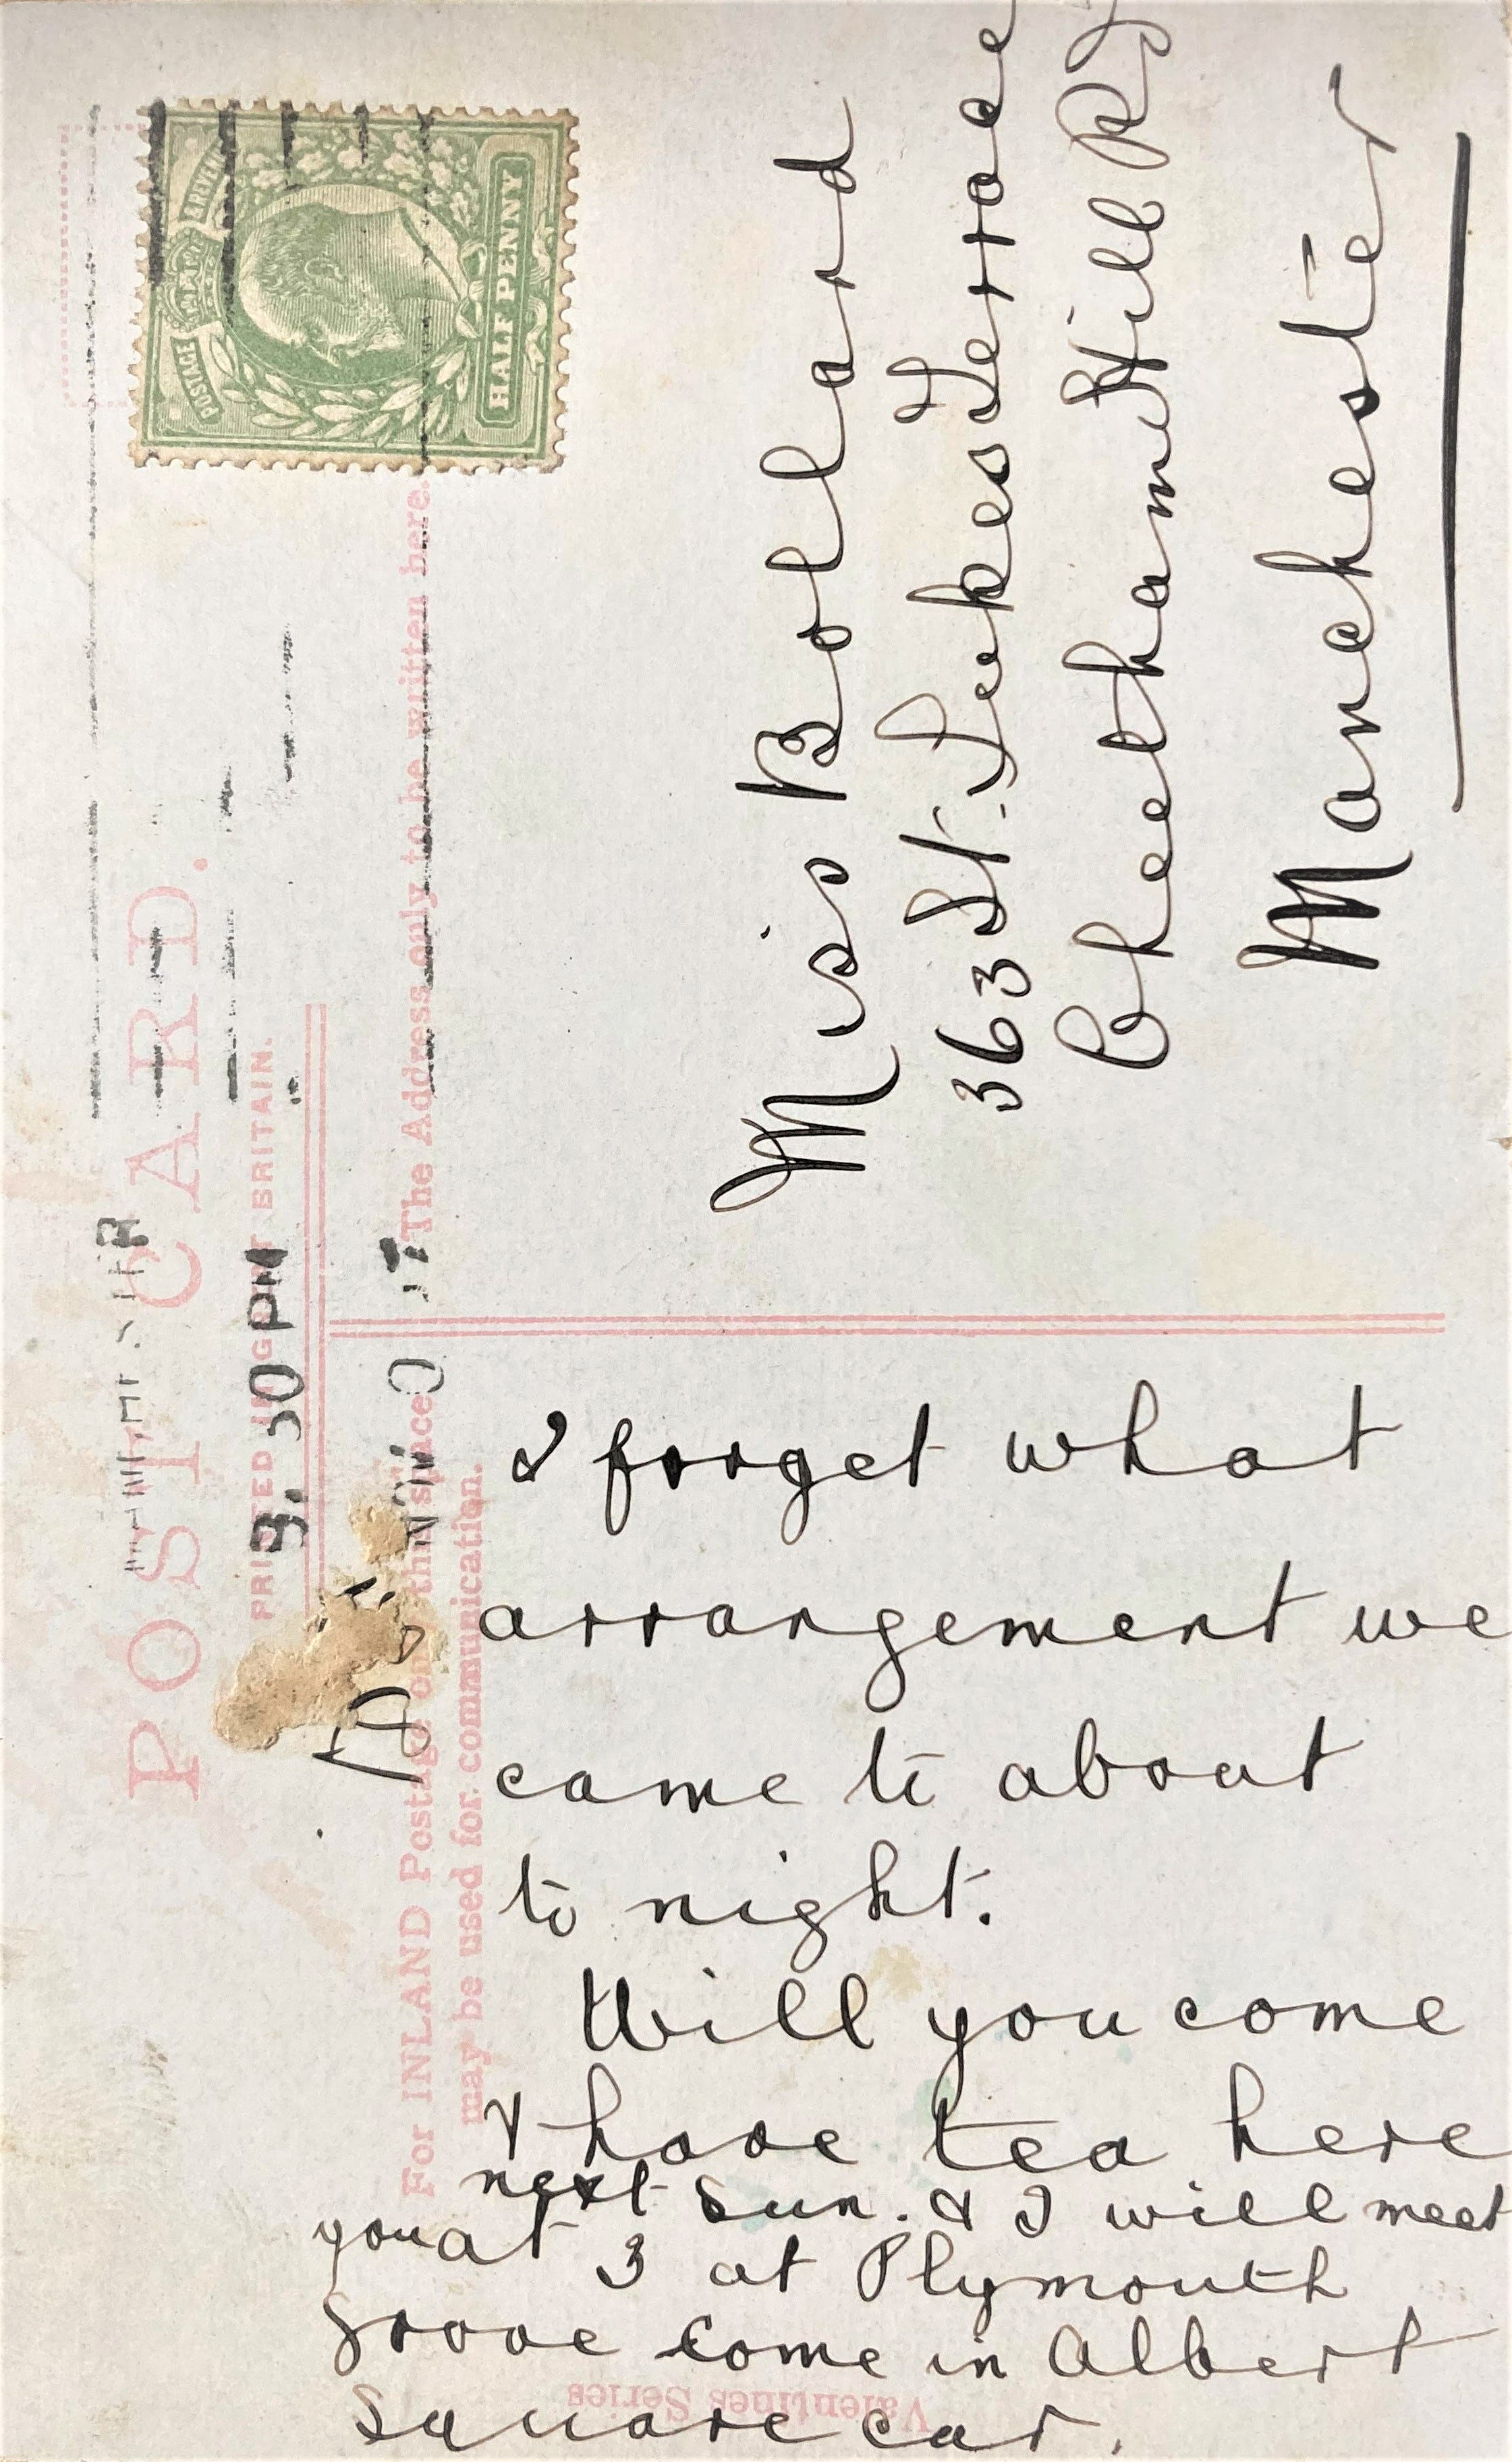 POST CARD.
PRINTED IN GREAT BRITAIN.
For INLAND Postage only this space
may be used for communication.
The Address only to be written here.
3.30 PM
POSTAGE & REVENUE
HALF PENNY
Miss Bolland
363 St. Lukes Terrace
Cheetham Hill Rd
Manchester
I forget what
arrangement we
came to about
to night.
Will you come
& have tea here
next Sun. & I will meet
you at 3 at Plymouth
Grove come in Albert
Square car.
Valentines Series